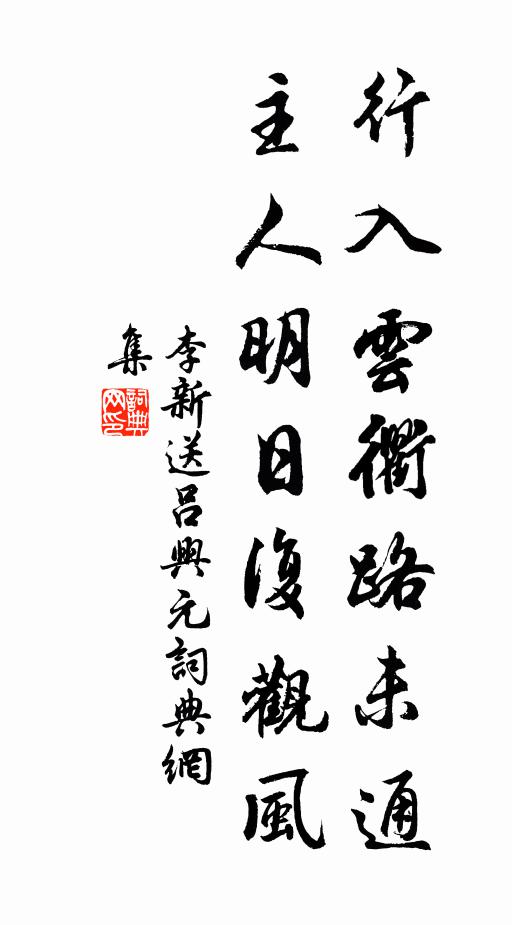 行入雲衢路未通
主人明日復觀風
李新送呂興元詞典網
集
詞典
网印